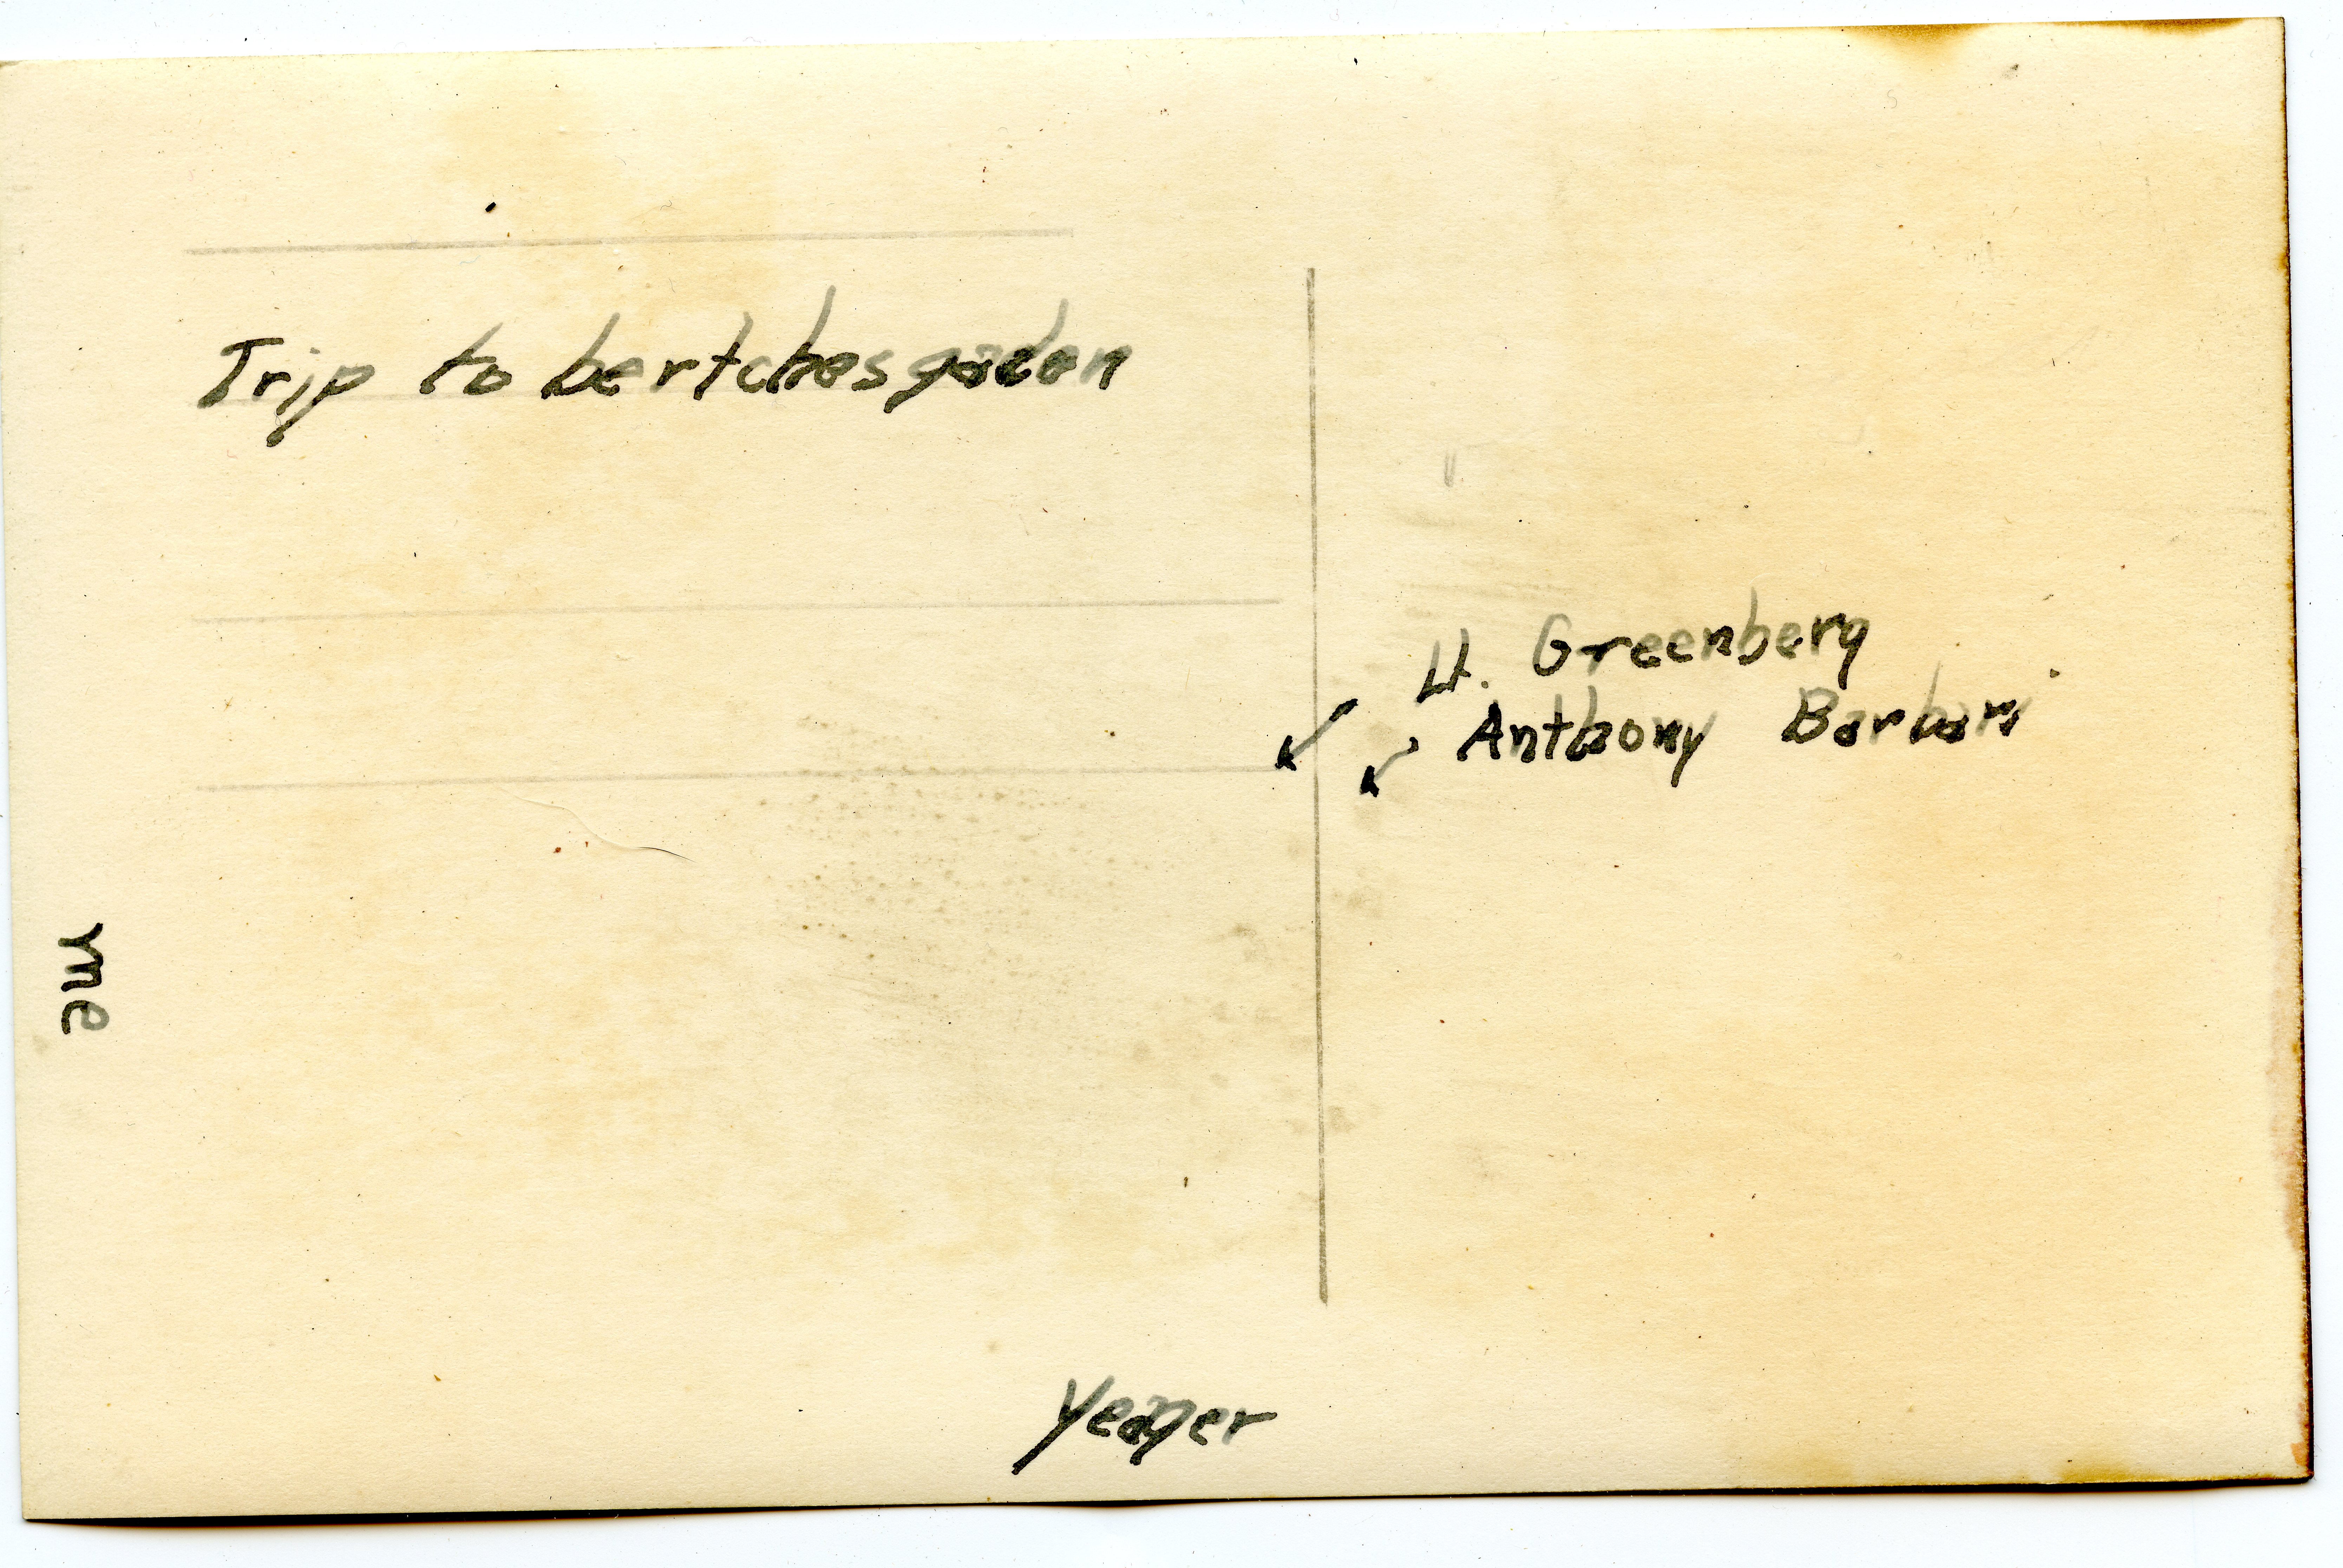 Trip to bertchesgaden
Lt. Greenberg
Anthony Barbari
me
Yeager